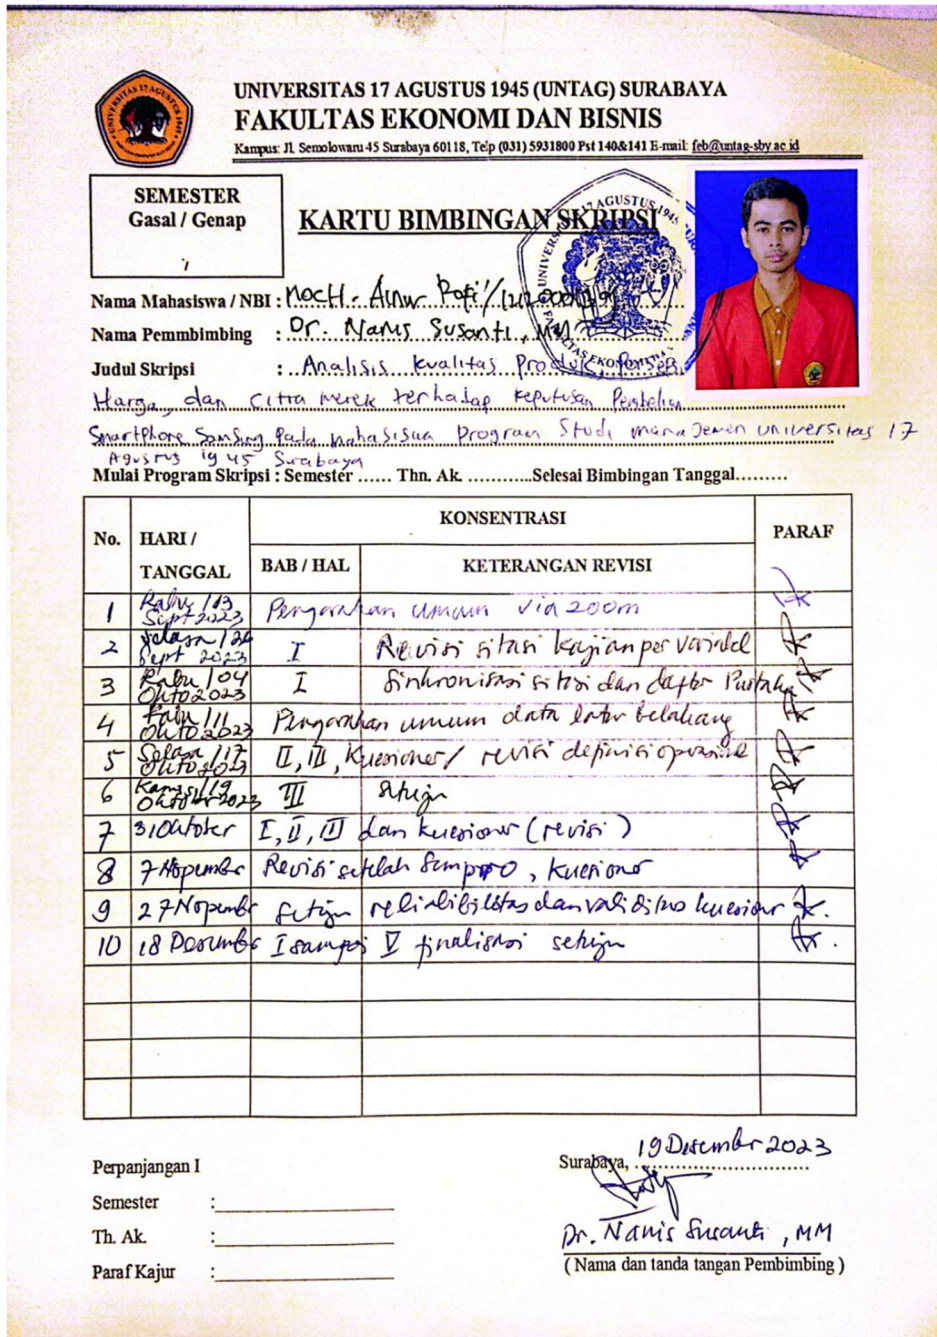 UNIVERSITAS 17 AGUSTUS 1945 (UNTAG) SURABAYA
FAKULTAS EKONOMI DAN BISNIS
Kampus: Jl. Semolowaru 45 Surabaya 60118, Telp (031) 5931800 Pst 140&141 E-mail: feb@untag-sby.ac.id
SEMESTER
Gasal / Genap
KARTU BIMBINGAN SKRIPSI
Nama Mahasiswa / NBI : Moch. Ainur Rofi' /
Nama Pemmbimbing : Dr. Nanis Susanti, MM
Judul Skripsi : Analisis kualitas Produk, Persepsi
Harga, dan Citra merek terhadap keputusan Pembelian
Smartphone Samsung Pada mahasiswa Program Studi manajemen universitas 17
Agustus 1945 Surabaya
Mulai Program Skripsi : Semester ...... Thn. Ak. ............Selesai Bimbingan Tanggal.........
No. HARI / TANGGAL KONSENTRASI PARAF
BAB / HAL KETERANGAN REVISI
1 Rabu /13 Sept 2023 Pengarahan umum via zoom
2 Selasa /26 Sept 2023 I Revisi sitasi kajian per variabel
3 Rabu /04 Okto 2023 I Sinkronisasi sitasi dan daftar Pustaka
4 Rabu /11 Okto 2023 Pengarahan umum data latar belakang
5 Selasa /17 Okto 2023 II, III, Kuesioner / revisi definisi operasional
6 Kamis /19 Oktober 2023 III Setuju
7 31 Oktober I, II, III dan kuesioner (revisi)
8 7 Nopember Revisi setelah Sempro, kuesioner
9 27 Nopember Setuju reliabilitas dan validitas kuesioner
10 18 Desember I sampai V finalisasi setuju
Perpanjangan I
Semester :
Th. Ak. :
Paraf Kajur :
Surabaya, 19 Desember 2023
Dr. Nanis Susanti, MM
( Nama dan tanda tangan Pembimbing )